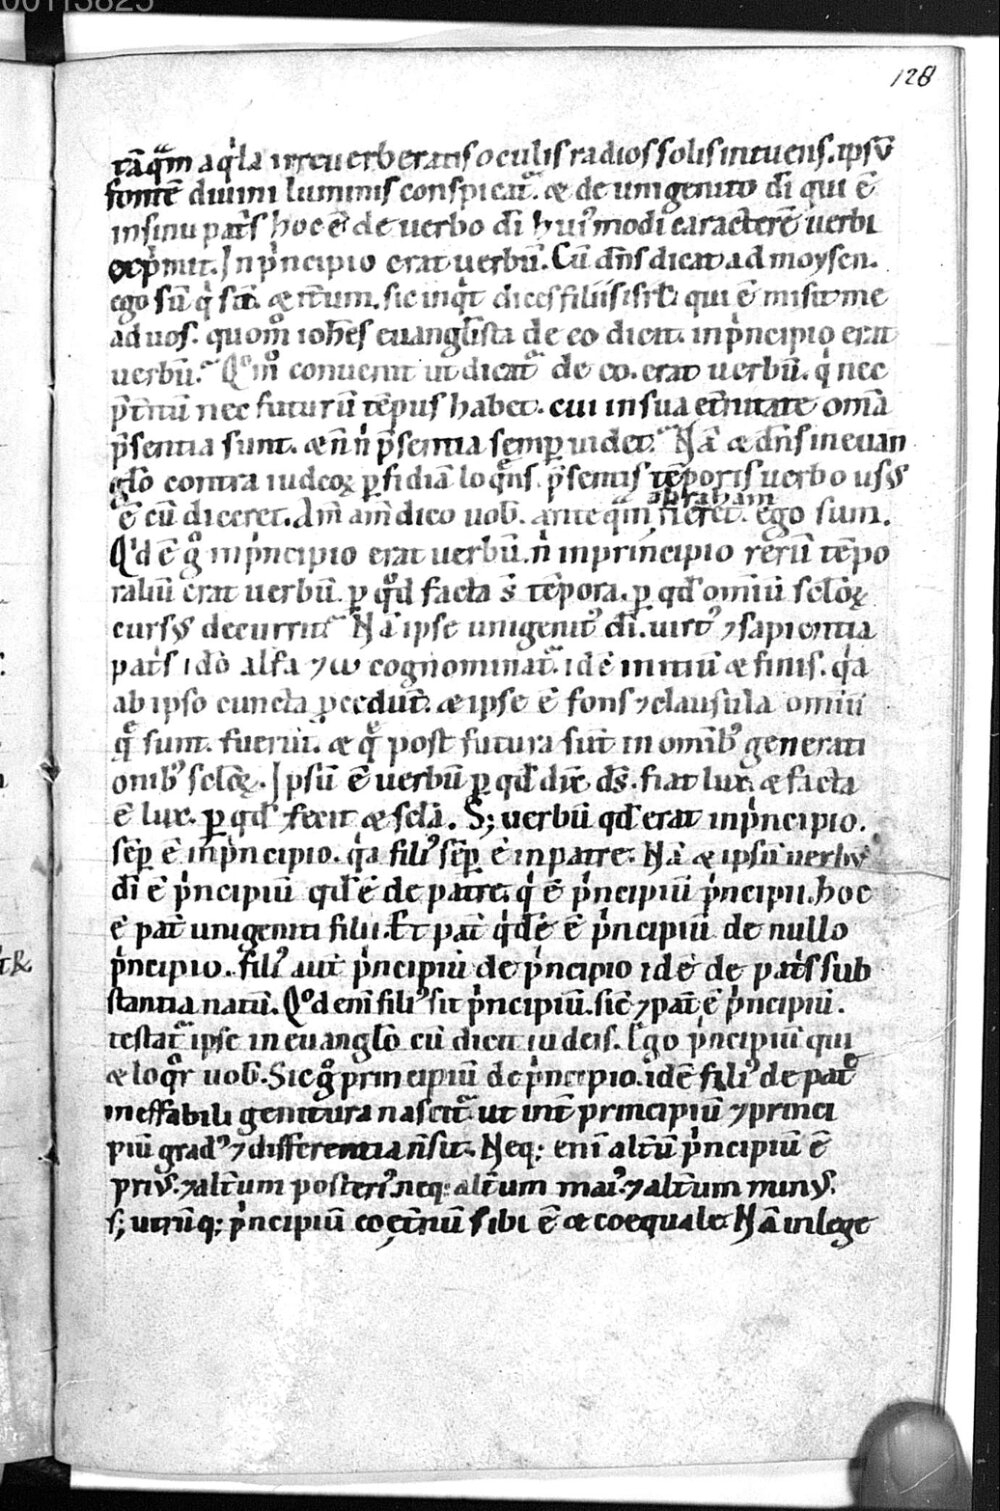 00113825
128
tāquā aqͥla irreuerberatis oculis radios solis intuens. ipsū
fontē diuini luminis conspicat᷑. & de unigenito dī qui ē
in sinu pat̄s hoc ē de uerbo dī huiꝰmodi caracterē uerbi
exp̄mit. In pͥncipio erat uerbū. Cū dn̄s dicat ad moysen.
ego sū qͥ sū. & it̄um. sic inqͥt dices filiis isrl̄. qui ē misit me
ad uos. quom̊ ioh̄es euangl̄ista de eo dicit. in pͥncipio erat
uerbū. Qͦm̊ conuenit ut dicat᷑ de eo. erat uerbū. qͥ nec
p̄t̄itū nec futurū tēpus habet. cui in sua et̄nitate om̄a
p̄sentia sunt. & n̄ n̄ p̄sentia semꝑ uidet. Nā & dn̄s in euan
gl̄o contra iudeoꝝ ꝑfidiā loqͣns. p̄sentis tēporis uerbo usꝰ
abraham
ē cū diceret. Am̄ am̄ dico uob̄. ante qͣm fieret. ego sum.
Qͥd ē gͦ in pͥncipio erat uerbū. n̄ in principio rerū tēpo
raliū erat uerbū. ꝑ qd̄ facta s̄ tēpora. ꝑ qd̄ omiū scl̄oꝝ
cursꝰ decurrit. Nā ipse unigenitꝰ dī. uirtꝰ ⁊ sapientia
pat̄s idō alfa ⁊ ω cognominat᷑. id ē initiū & finis. qͥa
ab ipso cuncta ꝓcedūt. & ipse ē fons ⁊ clausula omiū
qͣ sunt. fuerūt. & qͣ post futura sūt in omībꝰ generati
onibꝰ scl̄oꝝ. Ipsū ē uerbū ꝑ qd̄ dix̄ ds̄. fiat lux. & facta
ē lux. ꝑ qd̄ fecit & scl̄a. S; uerbū qd̄ erat in pͥncipio.
sēꝑ ē in pͥncipio. qͥa filiꝰ sēꝑ ē in patre. Nā & ipsū uerbū
dī ē pͥncipiū qd̄ ē de patre. qͥ ē pͥncipiū pͥncipii. hoc
ē pat̄ unigeniti filii. Et pat̄ qͥdē ē pͥncipiū de nullo
pͥncipio. filiꝰ aut̄ pͥncipiū de pͥncipio id ē de pat̄s sub
stantia natū. Qͦd eni filiꝰ sit pͥncipiū. sic̄ ⁊ pat̄ ē pͥncipiū.
testat᷑ ipse in euangl̄o cū dicit iudeis. Ego pͥncipiū qui
& loqͦr uob̄. Sic gͦ principiū de pͥncipio. id ē filiꝰ de patͤ
ineffabili genitura nascit᷑ ut int̄ principiū ⁊ princi
piū gradꝰ ⁊ differentia n̄ sit. Neq; eni alt̄ū pͥncipiū ē
priꝰ. ⁊ alt̄um posteriꝰ. neq; alt̄um maiꝰ. ⁊ alt̄um minꝰ.
s; utrūq; pͥncipiū coęt̄nū sibi ē & coequale. Nā in lege